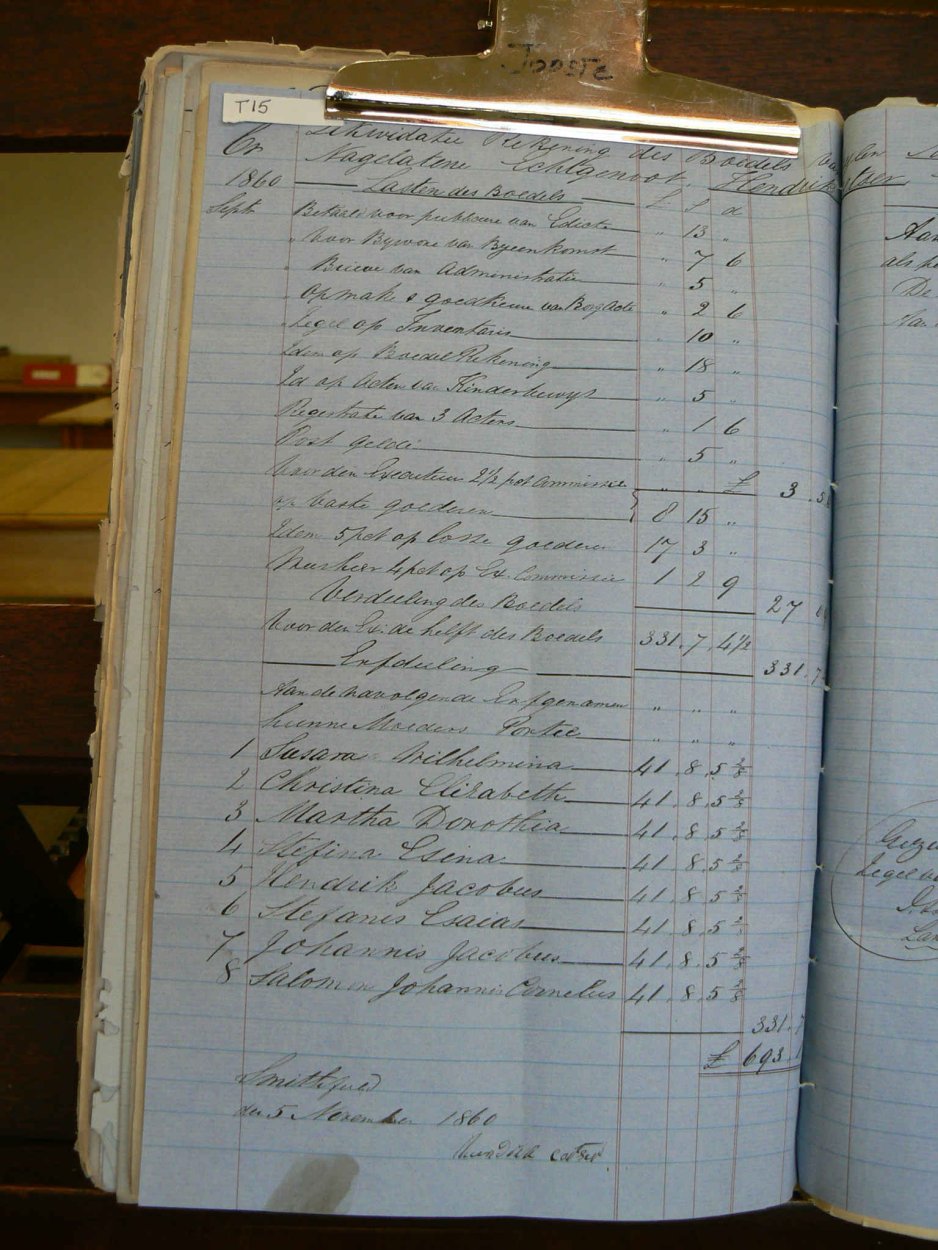 Jooste
T15
Likwidatie Rekening des Boedels
Cr Nagelatene Echtgenoot Hendrik
1860 Lasten des Boedels £ s d
Sept Betaald voor publicure van Edicte " 13 "
" Voor Bywone van Byeenkomst " 7 6
" Brieve van Administratie " 5 "
" Opmake & goedkeure van Borg Acte " 2 6
" Zegel op Inventaris " 10 "
Idem op Boedel Rekening " 18 "
Id op Acten van Kinderbewys " 5 "
Registratie van 3 Actens " 1 6
Post gelde " 5 "
Voor den Executeur 2½ pct Commissie " " £ 3
op vaste goederen 8 15 "
Idem 5 pct op losse goederen 17 3 "
Meesheer 4 pct op Ex. Commissie 1 2 9
Verdeeling des Boedels 27
Voor den Ex: de helft des Boedels 331.7.4½
Erfdeeling 331.7
Aan de navolgende Erfgenamen " " "
hunne Moeders Portie " " "
1 Susara Wilhelmina 41.8.5 2/8
2 Christina Elizabeth 41.8.5 2/8
3 Martha Dorothia 41.8.5 2/8
4 Stefina Esina 41.8.5 2/8
5 Hendrik Jacobus 41.8.5 2/8
6 Stefanis Esaias 41.8.5
7 Johannis Jacobus 41.8.5 2/8
8 Salomon Johannis Cornelus 41.8.5 2/8
331.7
£ 693.1
Smithfield
den 5 November 1860
Aan
als
De
Aan
Zegel